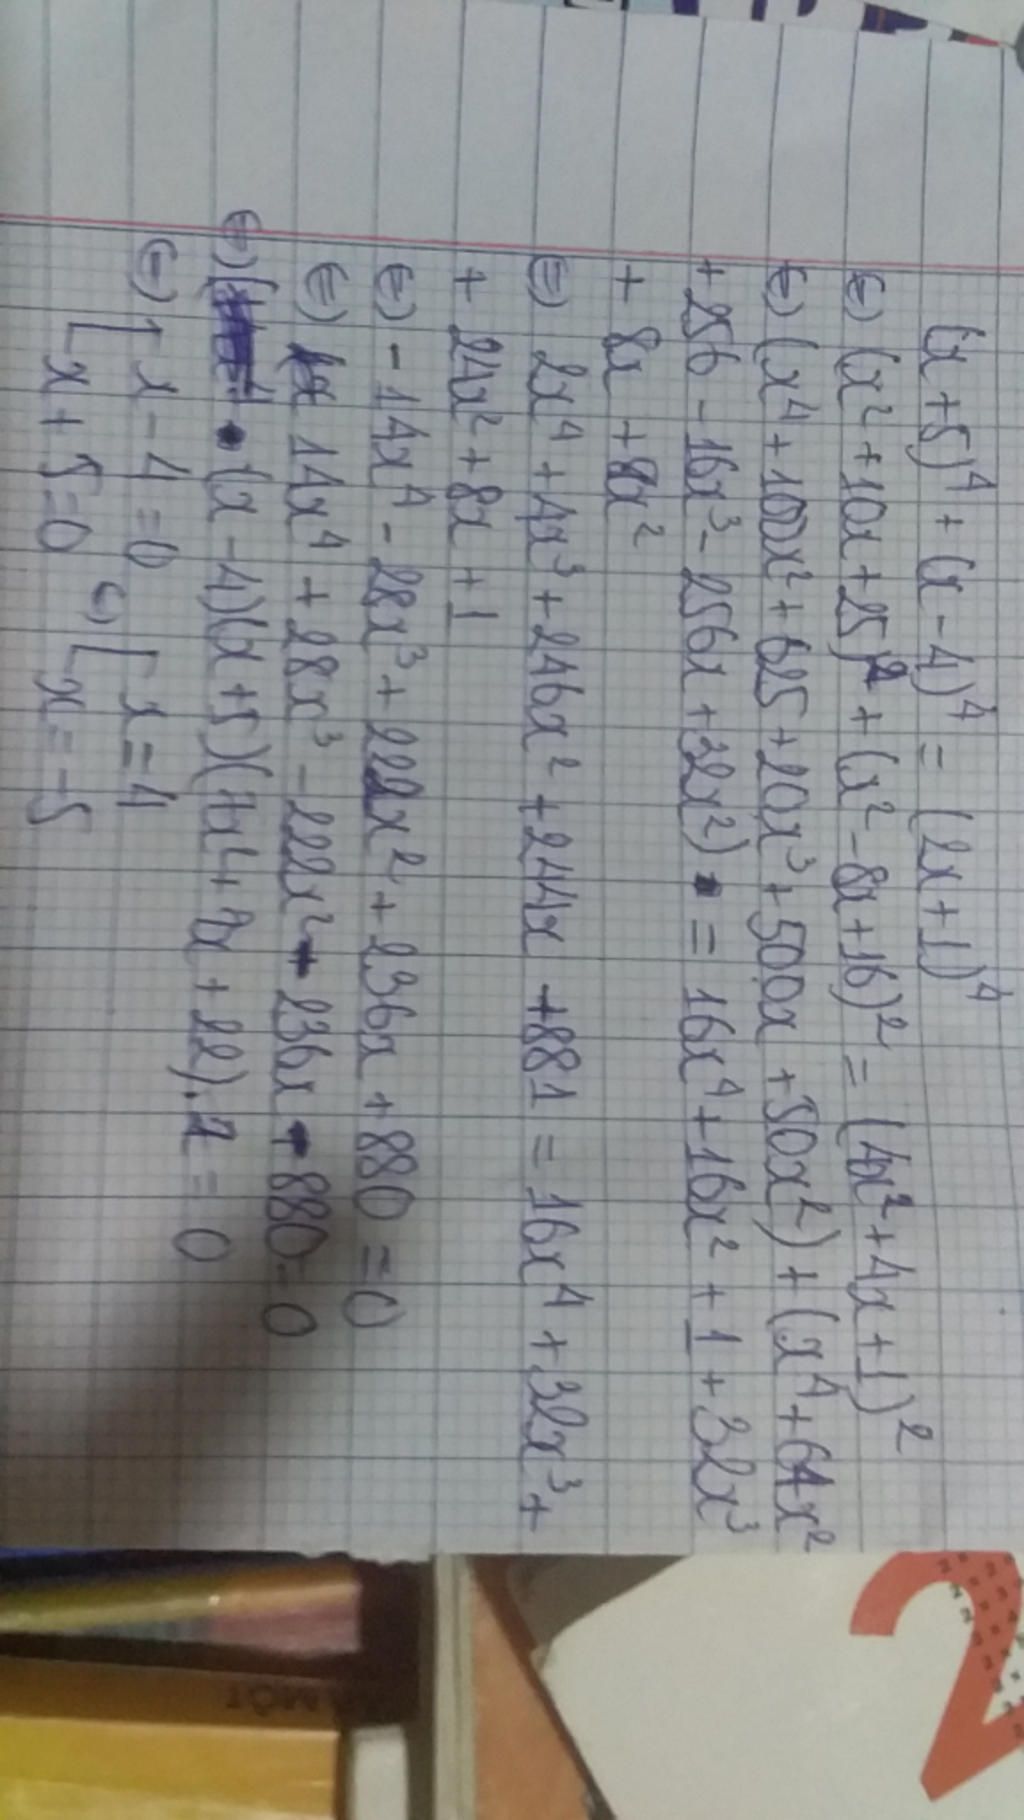 (x+5)⁴ + (x-4)⁴ = (2x+1)⁴
⇔ (x²+10x+25)² + (x²-8x+16)² = (4x²+4x+1)²
⇔ (x⁴+100x²+625+20x³+500x+50x²)+(x⁴+64x²
+256-16x³-256x+32x²) = 16x⁴+16x²+1+32x³
+ 8x +8x²
⇔ 2x⁴+4x³+246x²+244x+881=16x⁴+32x³+
+ 24x²+8x+1
⇔ -14x⁴-28x³+222x²+236x+880=0
⇔ 14x⁴+28x³-222x²-236x-880=0
⇔ (x-4)(x+5)(7x²+7x+22).2=0
⇔ [x-4=0 ⇔ [x=4
[x+5=0 [x=-5
2
MỘT